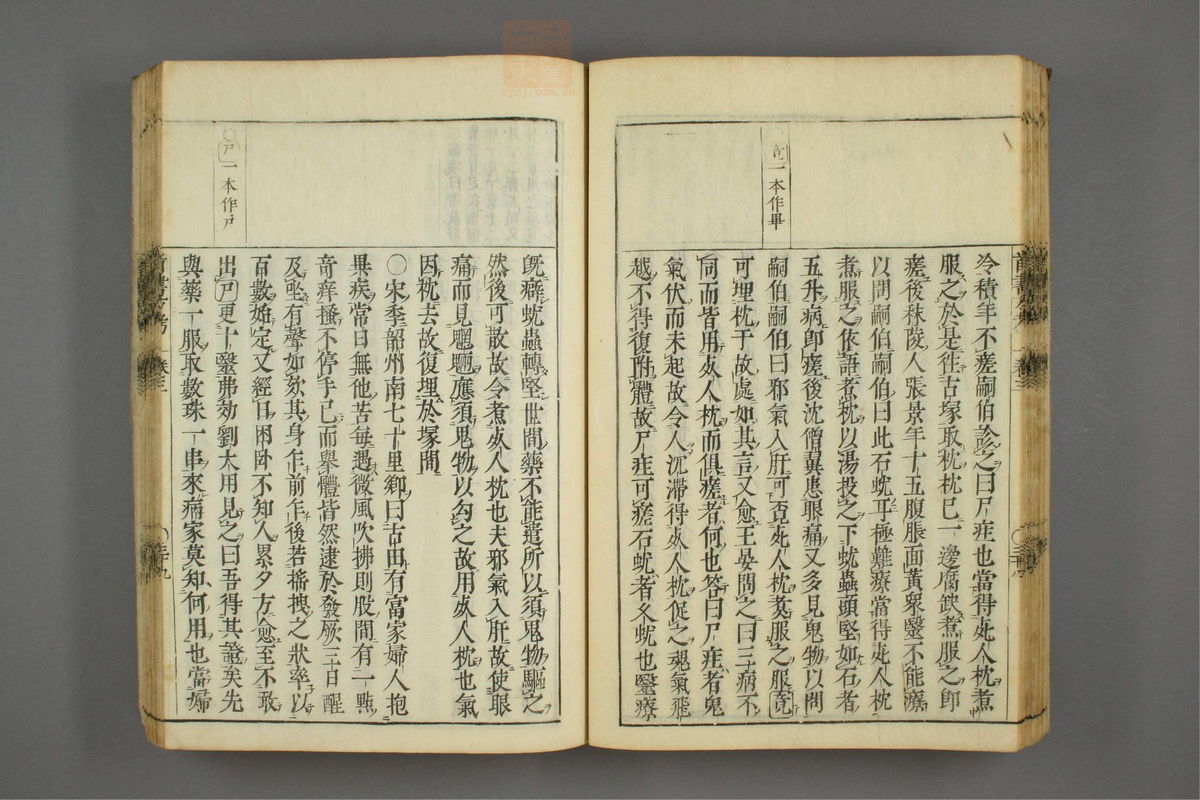 竟一本作畢
冷積年不瘥嗣伯診之曰尸疰也當得死人枕煮
服之於是往古塚取枕枕已一邊腐缺煮服之卽
瘥後秣陵人張景年十五腹脹面黃衆醫不能療
以問嗣伯嗣伯曰此石蚘耳極難療當得死人枕
煮服之依語煮枕以湯投之下蚘蟲頭堅如石者
五升病卽瘥後沈僧翼患眼痛又多見鬼物以問
嗣伯嗣伯曰邪氣入肝可覓死人枕煮服之服竟
可埋枕于故處如其言又愈王晏問之曰三病不
同而皆用死人枕而俱瘥者何也答曰尸疰者鬼
氣伏而未起故令人沉滯得死人枕促之魂氣飛
越不得復附體故尸疰可瘥石蚘者久蚘也醫療
○尸一本作户
旣癖蚘蟲轉堅世間藥不能遣所以須鬼物驅之
然後可散故令煮死人枕也夫邪氣入肝故使眼
痛而見魍魎應須鬼物以勾之故用死人枕也氣
因枕去故復埋於塚間
○宋季韶州南七十里鄉曰古田有富家婦人抱
異疾常日無他苦每遇微風吹拂則股間有一點
奇痒搔不停手已而舉體皆然逮於發厥三日醒
及坐有聲如欬其身乍前乍後若搖拽之狀率以
百數始定又經日困臥不知人累夕方愈至不敢
出尸更十醫弗効劉大用見之曰吾得其證矣先
與藥一服取數珠一串來病家莫知何用也當婦